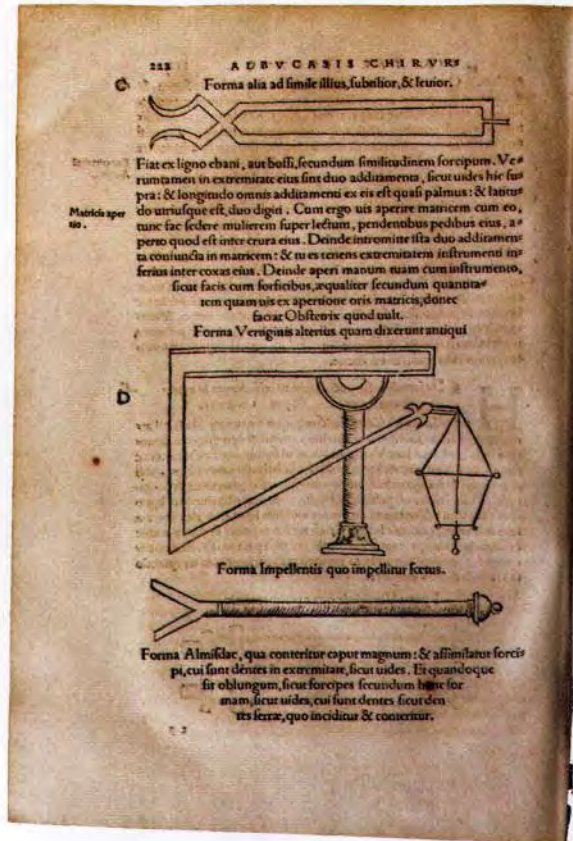 222 ADBVCASIS CHIRVR
C
Forma alia ad simile illius, subtilior, & leuior.
Fiat ex ligno ebani, aut bossi, secundum similitudinem forcipum. Ve⸗
rumtamen in extremitate eius sint duo additamenta, sicut uides hic su⸗
pra: & longitudo omnis additamenti ex eis est quasi palmus: & latitu⸗
Matricis aper
tio.
do utriusque est, duo digiti. Cum ergo uis aperire matricem cum eo,
tunc fac sedere mulierem super lectum, pendentibus pedibus eius, a⸗
perto quod est inter crura eius. Deinde intromitte ista duo additamen⸗
ta coniuncta in matricem: & tu es tenens extremitatem instrumenti in⸗
ferius inter coxas eius. Deinde aperi manum tuam cum instrumento,
sicut facis cum forficibus, æqualiter secundum quantita⸗
tem quam uis ex apertione oris matricis, donec
faciat Obstetrix quod uult.
Forma Vertiginis alterius quam dixerunt antiqui
D
Forma Impellentis quo impellitur fœtus.
Forma Almisdac, qua conteritur caput magnum: & assimilatur forci⸗
pi, cui sunt dentes in extremitate, sicut uides. Et quandoque
fit oblungum, sicut forcipes secundum hanc for
mam, sicut uides, cui sunt dentes sicut den
tes serræ, quo inciditur & conteritur.